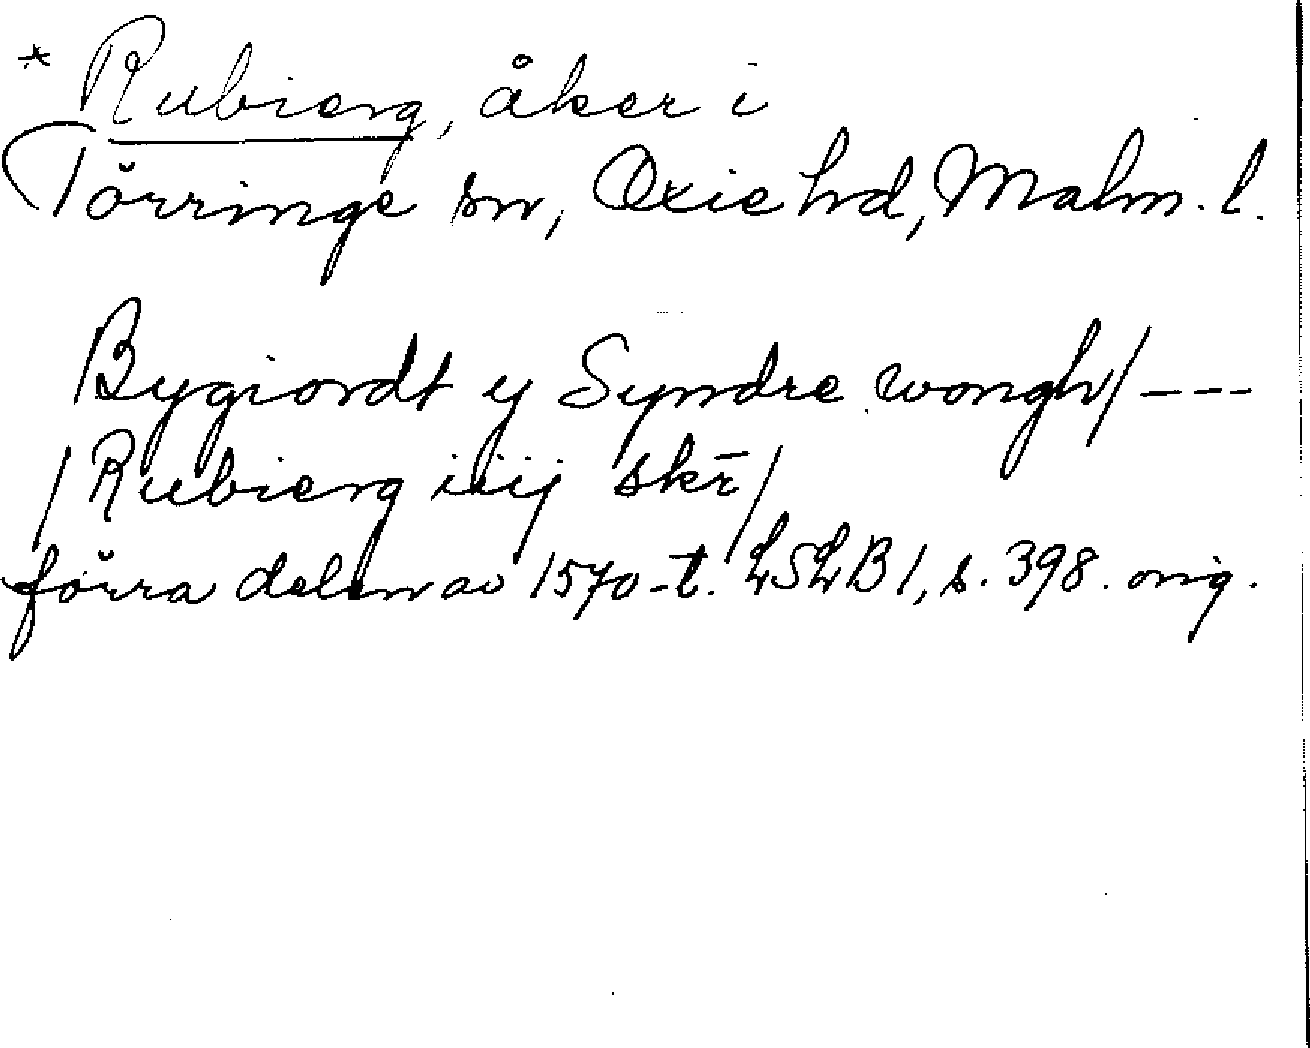 * Rubierg, åker i
Törringe sn, Oxie hd, Malm. l.
Bygiordt y Syndre wongh/ ---
/Rubierg iiij skr̄/
förra delen av 1570-t. LSLB 1, s. 398. orig.